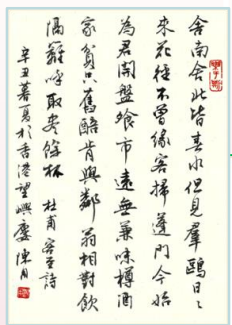 舍南舍北皆春水但見羣鷗日〻
來花徑不曾緣客掃蓬門今始
為君開盤飧市遠無兼味樽酒
家貧只舊醅肯與鄰翁相對飲
隔籬呼取盡餘杯 杜甫客至詩
辛丑暮夏於香港望嶼廬陳